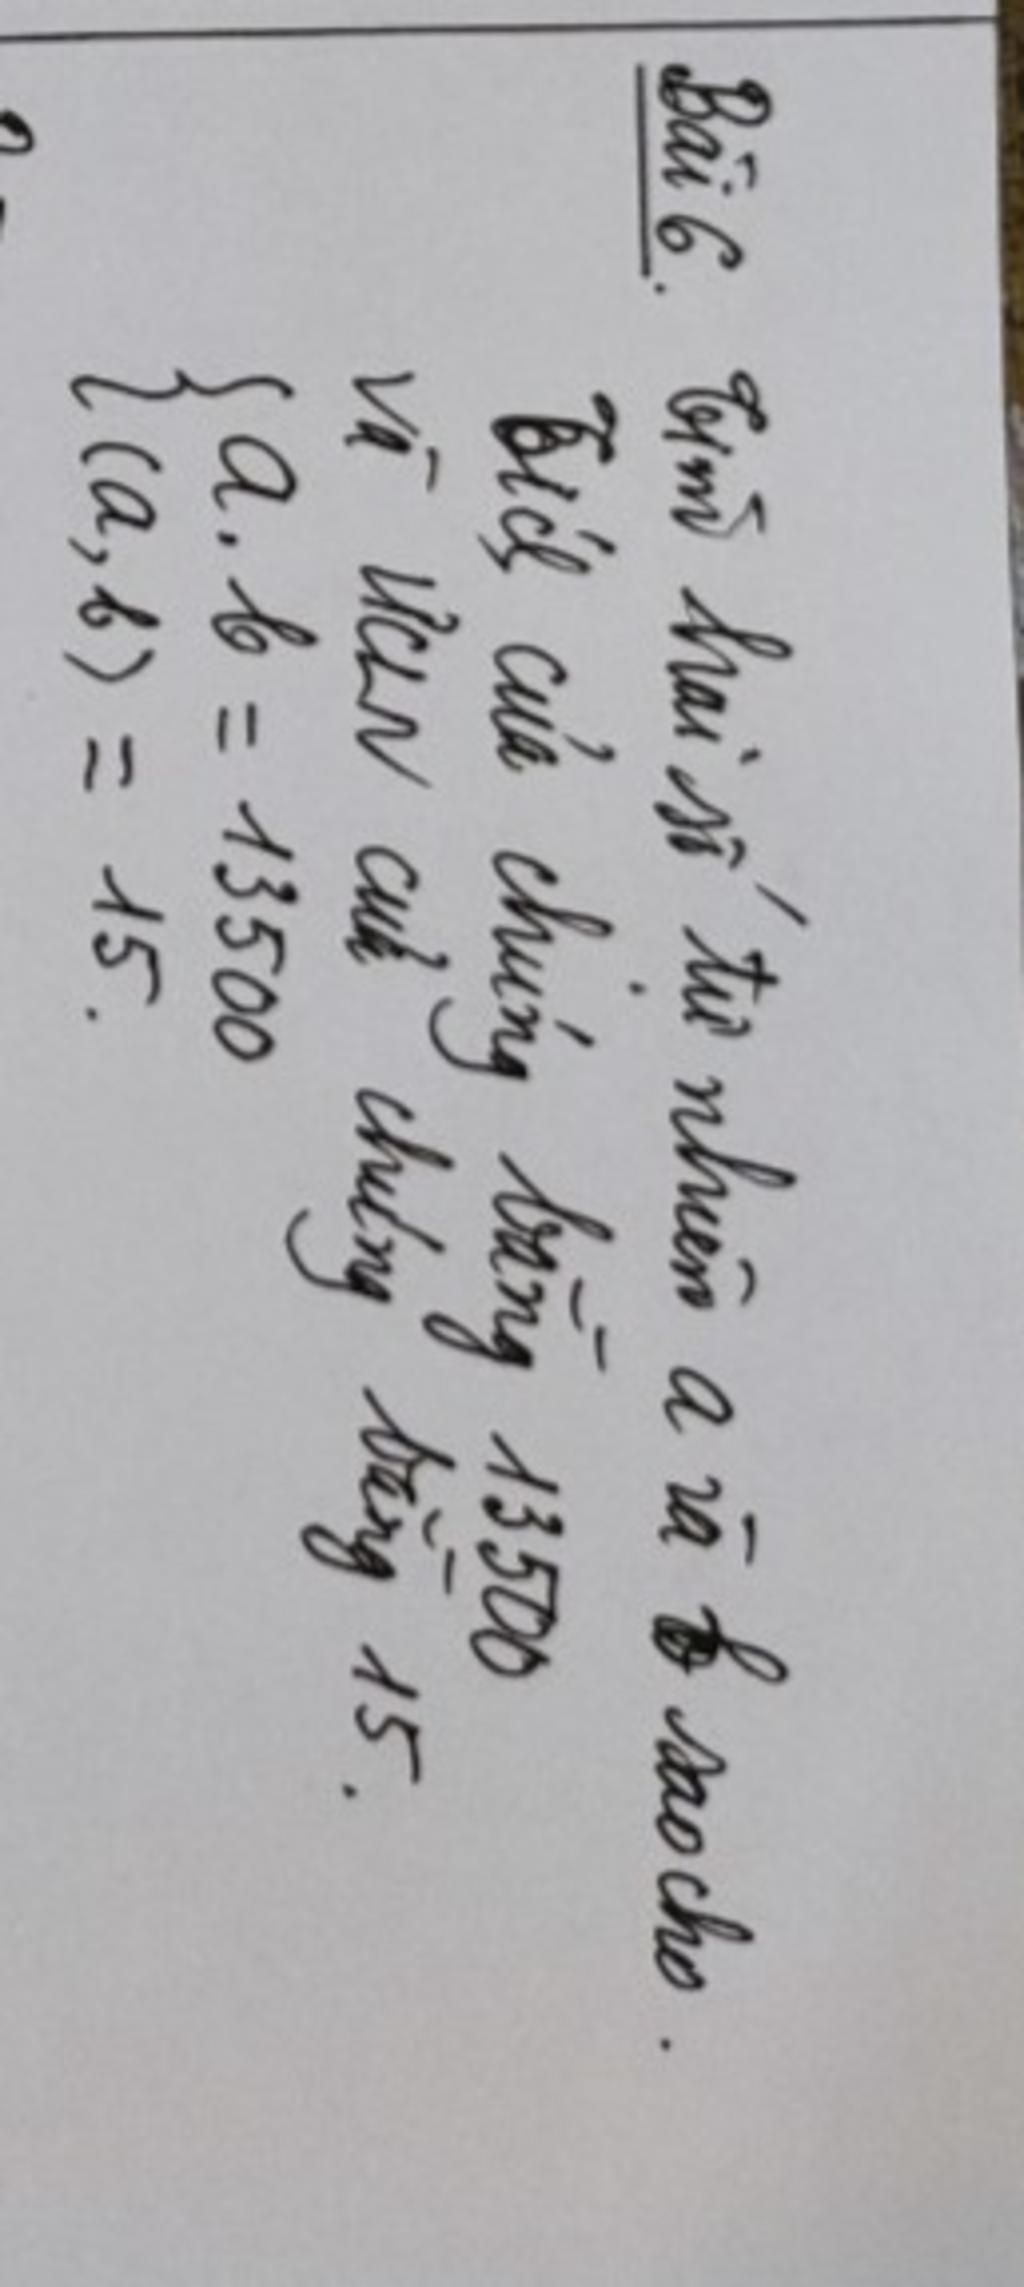 Bài 6. Tìm hai số tự nhiên a và b sao cho.
Tích của chúng bằng 13500
và ƯCLN của chúng bằng 15.
{ a. b = 13500
(a, b) = 15.